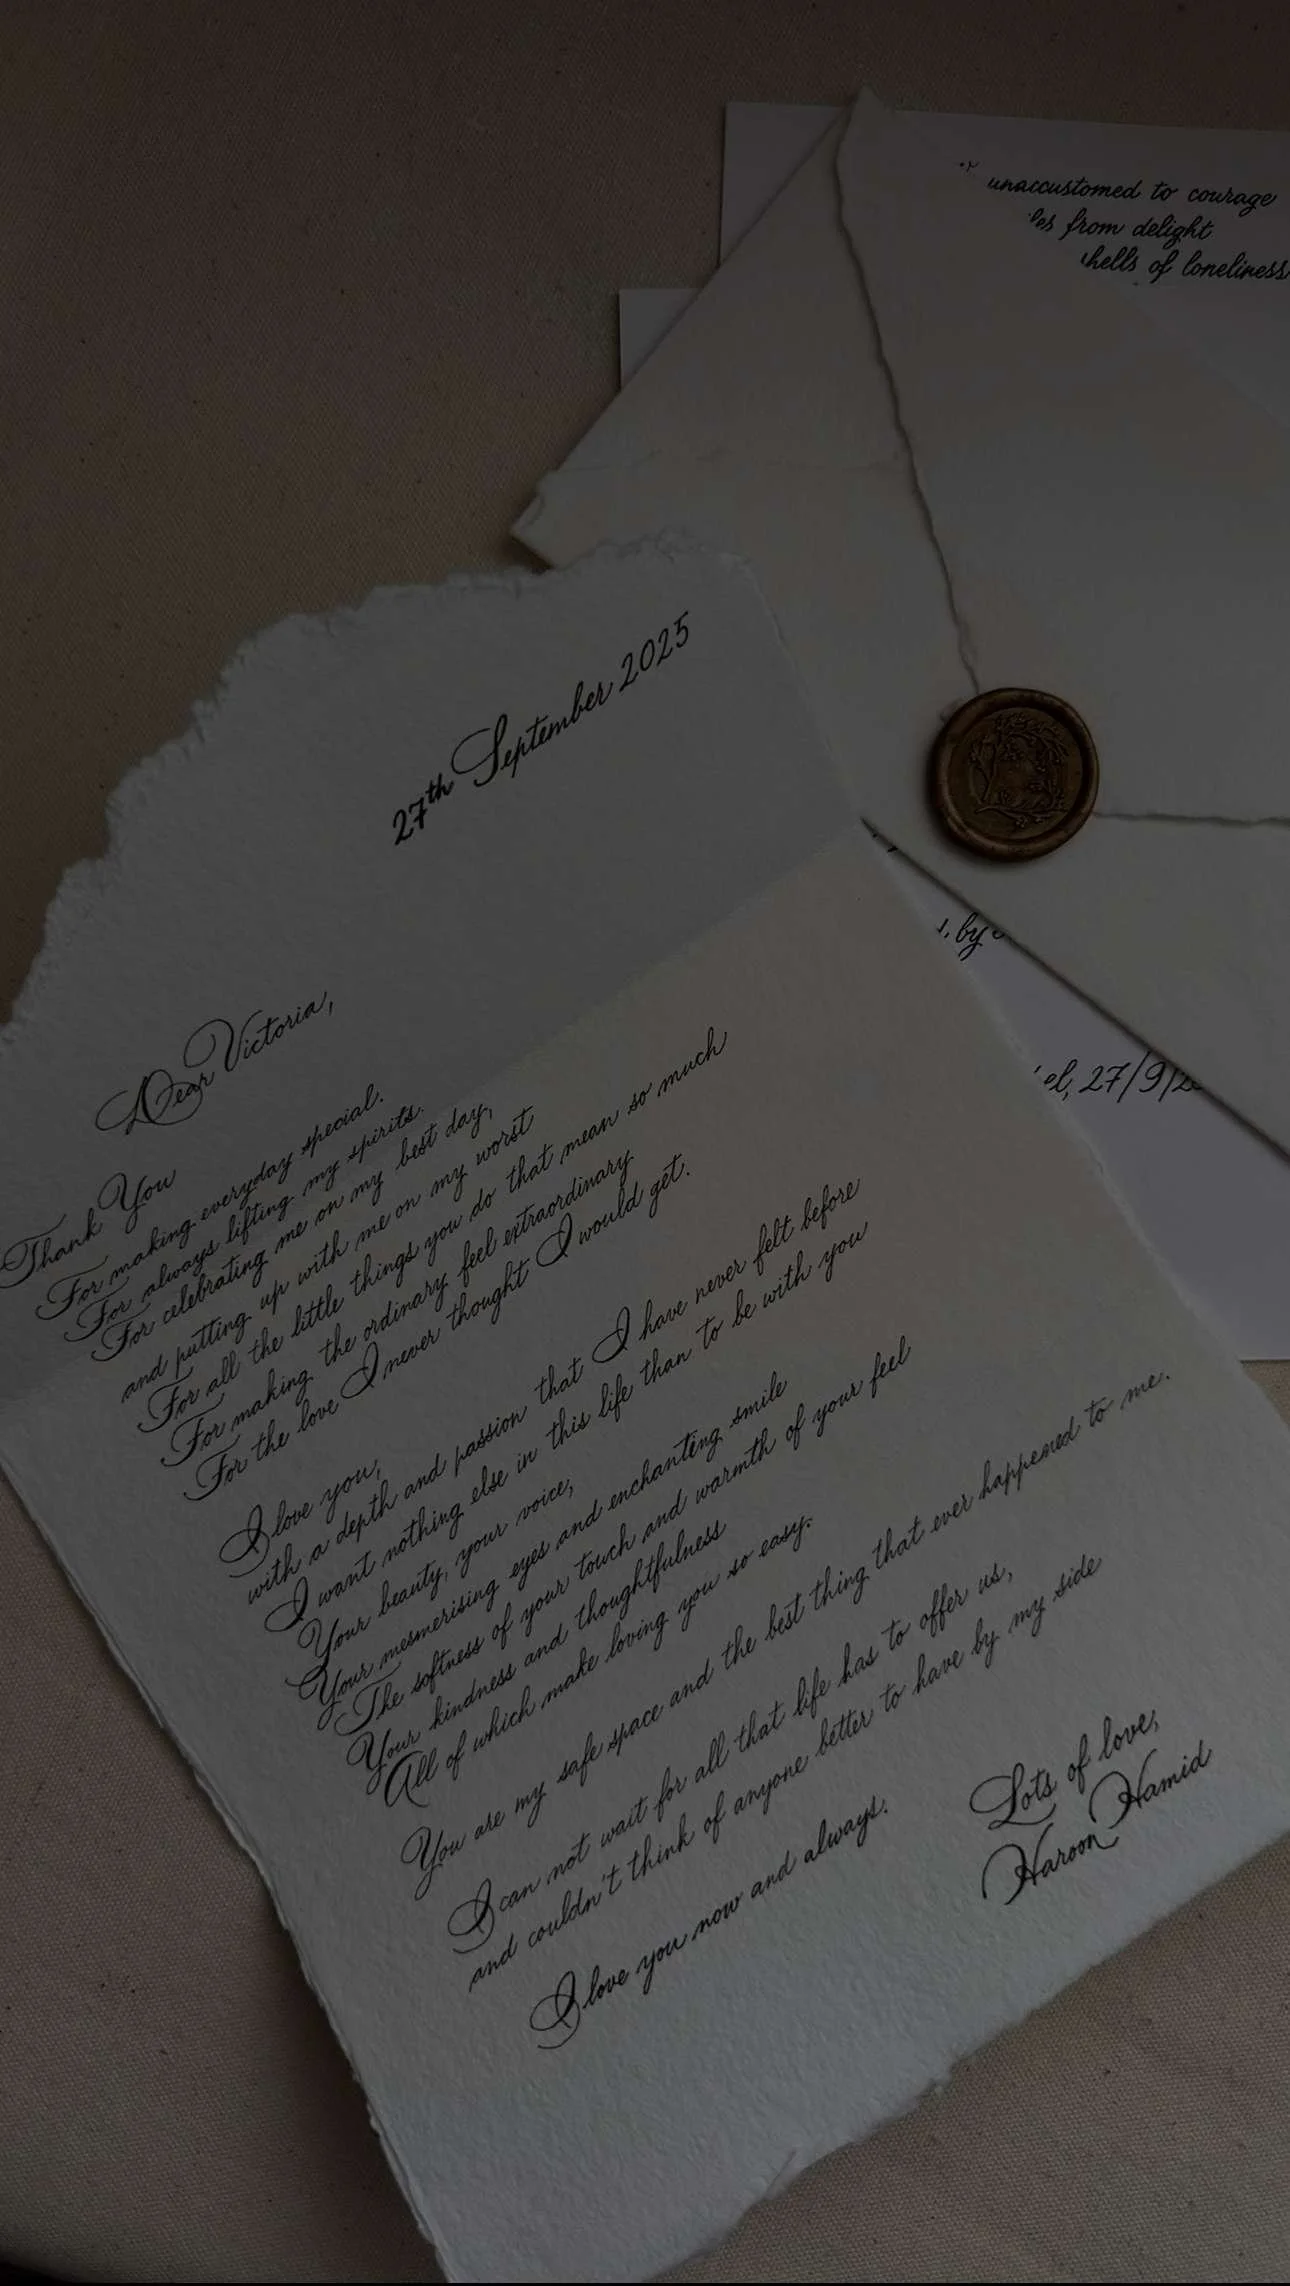 unaccustomed to courage
from delight
of loneliness
by
27/9/
27th September 2025
Dear Victoria,
Thank You
For making everyday special.
For always lifting my spirits.
For celebrating me on my best day,
and putting up with me on my worst
For all the little things you do that mean so much
For making the ordinary feel extraordinary
For the love I never thought I would get.
I love you,
with a depth and passion that I have never felt before
I want nothing else in this life than to be with you
Your beauty, your voice,
Your mesmerising eyes and enchanting smile
The softness of your touch and warmth of your feel
Your kindness and thoughtfulness
All of which make loving you so easy.
You are my safe space and the best thing that ever happened to me.
I can not wait for all that life has to offer us,
and couldn't think of anyone better to have by my side
I love you now and always.
Lots of love,
Haroon Hamid